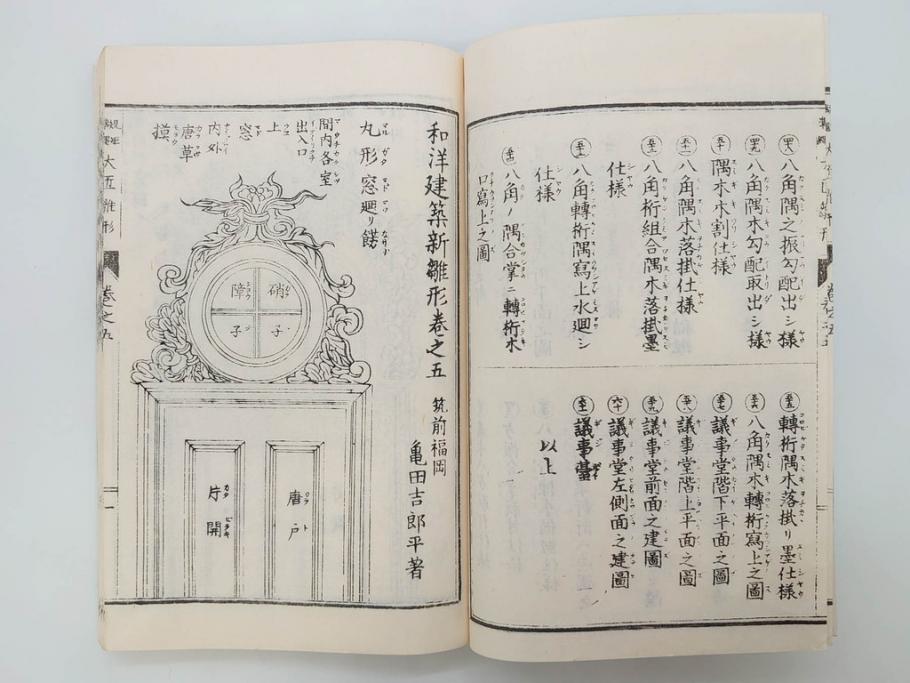 四八 八角隅之振勾配出シ様
四九 八角隅木勾配取出シ様
五十 隅木木割仕様
五一 八角隅木落掛仕様
五二 八角桁組合隅木落掛墨
仕様
五三 八角轉桁隅寫上水廻シ
仕様
五四 八角ノ隅合掌ニ轉桁木
口寫上之圖
五五 轉桁隅木落掛リ墨仕様
五六 八角隅木轉桁寫上之圖
五七 議事堂階下平面之圖
五八 議事堂階上平面之圖
五九 議事堂前面之建圖
六十 議事堂左側面之建圖
六一 議事臺
以上
和洋建築新雛形卷之五
筑前福岡
亀田吉郎平著
丸形窓廻リ餝
間内各室
出入口
上
窓
内外
唐草
模
硝子
障子
唐戸
片開
大五雛形
卷之五